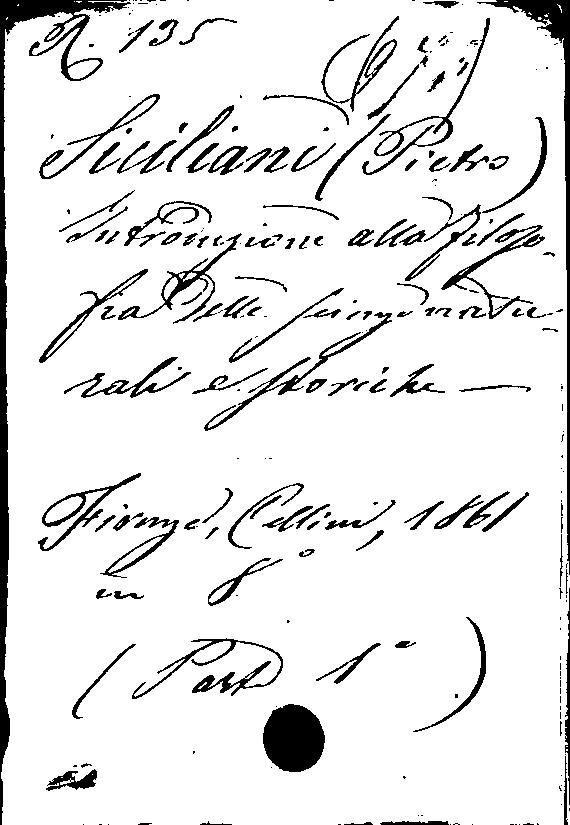 R. 135
Siciliani (Pietro)
Introduzione alla filoso-
fia delle scienze natu-
rali e storiche —
Firenze, Cellini, 1861
in 8°
(Parte 1ª)